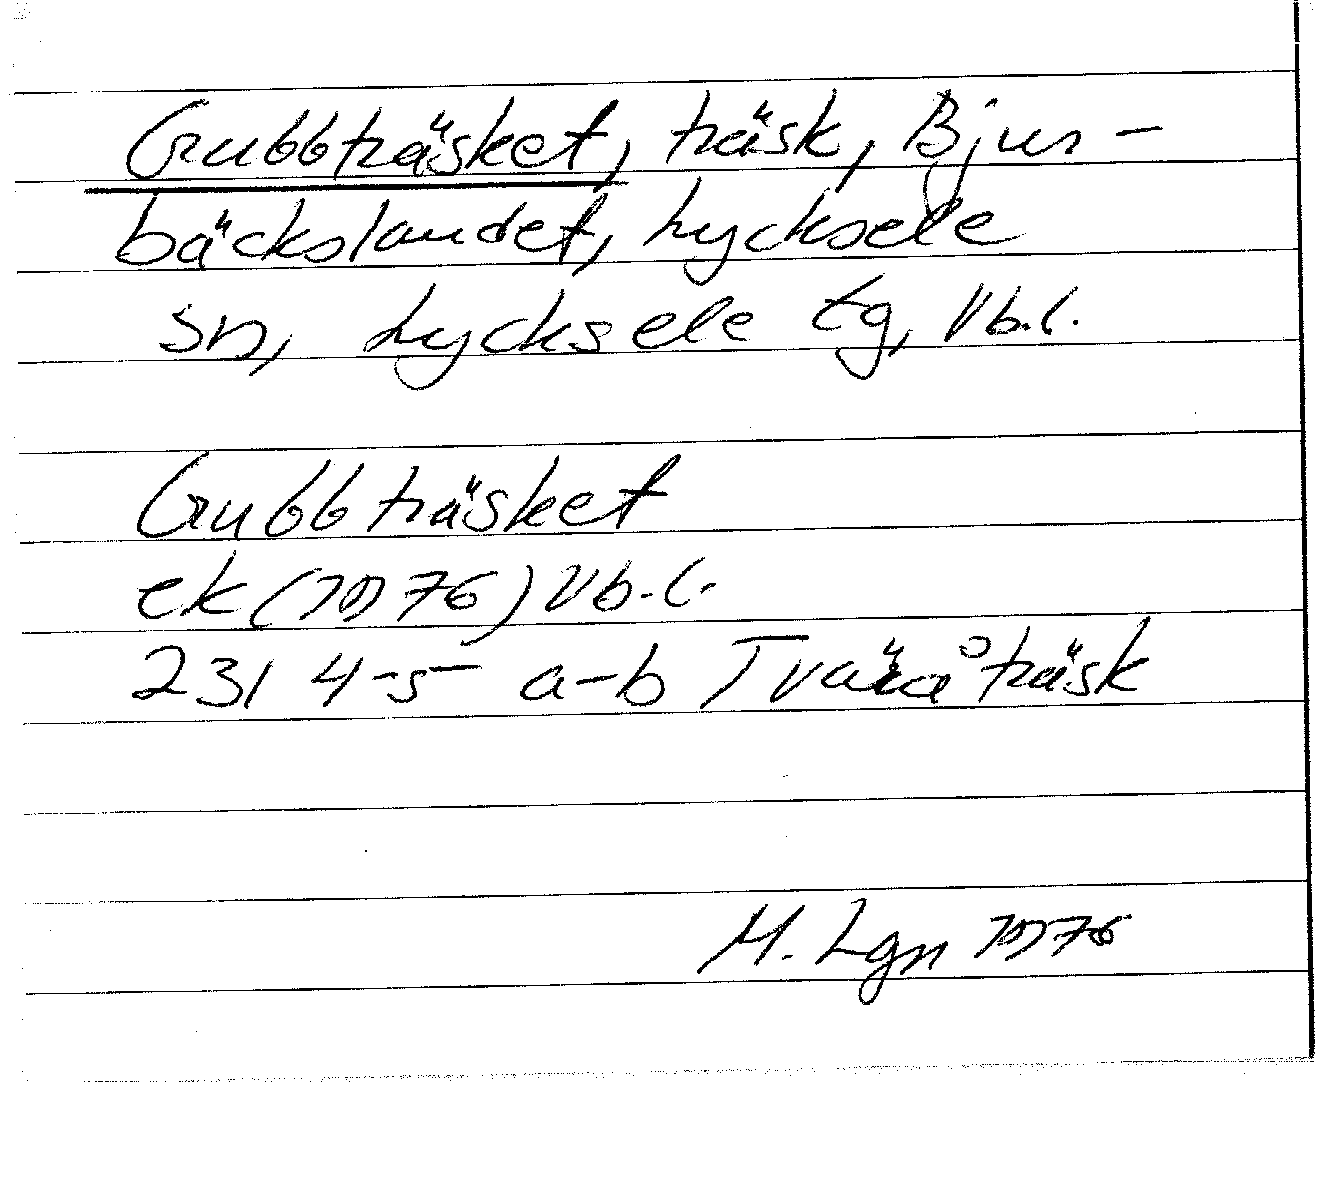 Gubbträsket, träsk, Bjur-
bäckslandet, Lycksele
sn, Lycksele tg, Vb.l.
Gubbträsket
ek (1976) Vb.l.
231 4-5 a-b Tväråträsk
M. Lgn 1976